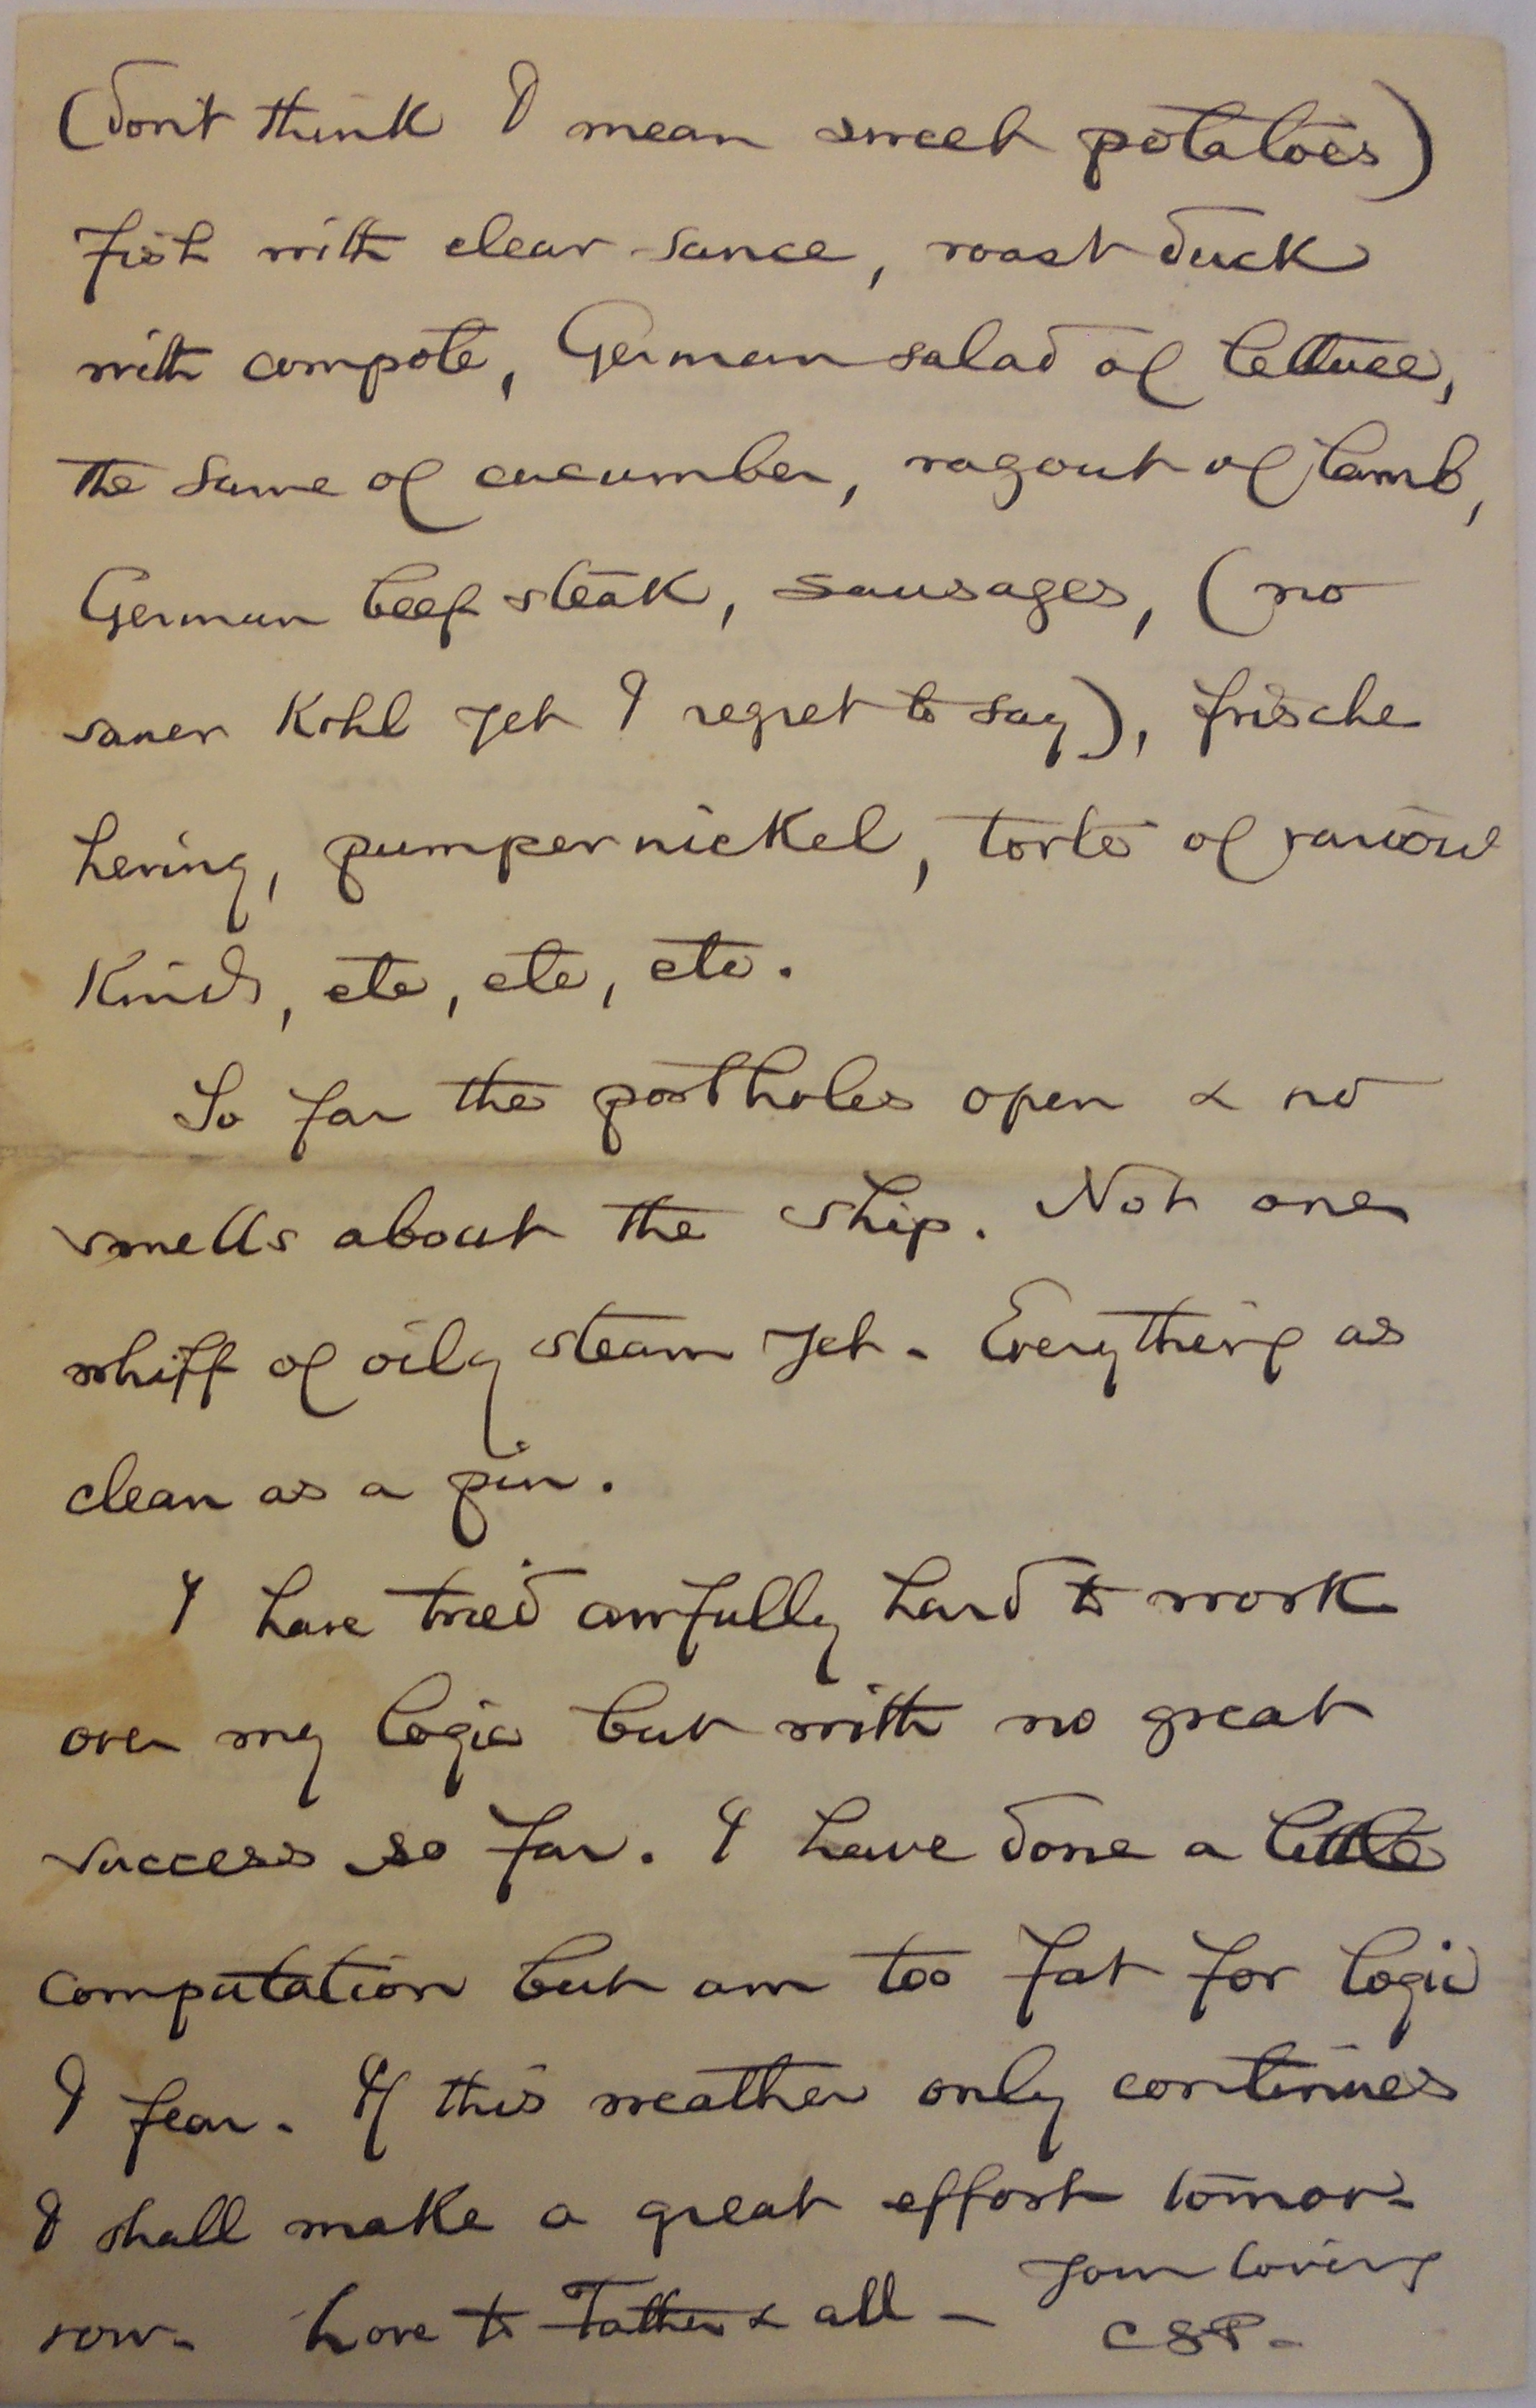 (don't think I mean sweet potatoes)
fish with clear sauce, roast duck
with compote, German salad of lettuce,
the same of cucumber, ragout of lamb,
German beef steak, sausages, (no
sauer Kohl yet I regret to say), frische
hering, pumpernickel, torte of various
kinds, etc, etc, etc.
So far the portholes open & no
smells about the ship. Not one
whiff of oily steam yet. Everything as
clean as a pin.
I have tried awfully hard to work
over my logic but with no great
success so far. I have done a little
computation but am too fat for logic
I fear. If this weather only continues
I shall make a great effort tomor-
row. Love to Father & all – Your loving
CSP.